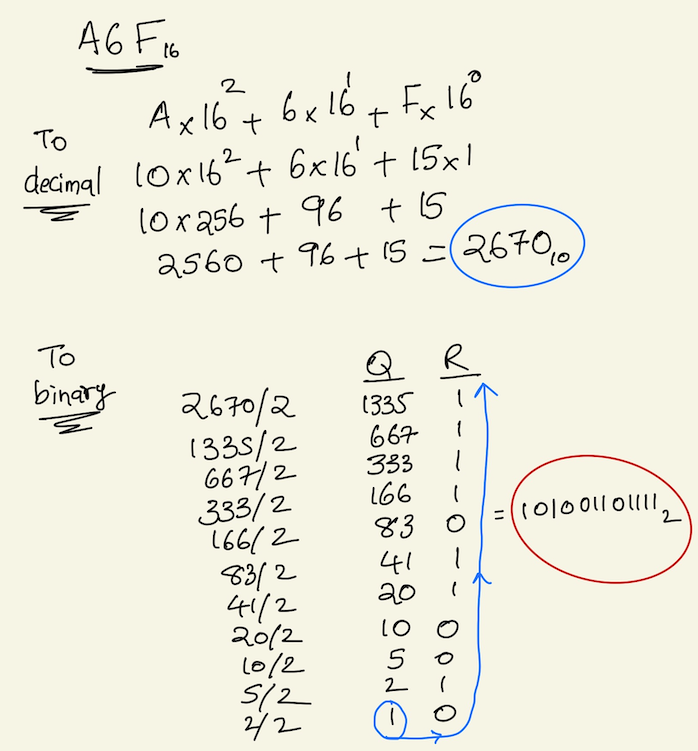 A6F₁₆
A×16² + 6×16¹ + F×16⁰
To
decimal
10×16² + 6×16¹ + 15×1
10×256 + 96 + 15
2560 + 96 + 15 = 2670₁₀
To
binary
Q R
2670/2 1335 1
1335/2 667 1
667/2 333 1
333/2 166 1
166/2 83 0
83/2 41 1
41/2 20 1
20/2 10 0
10/2 5 0
5/2 2 1
2/2 1 0
= 101001101111₂